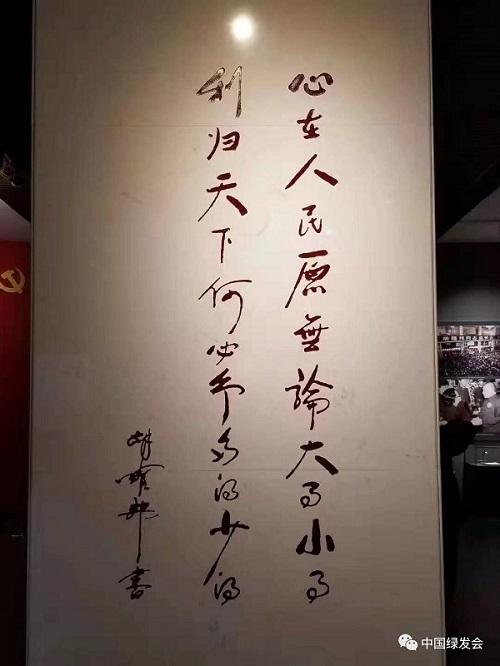 心在人民原無論大事小事
利归天下何必争多得少得
胡耀邦書
中国绿发会